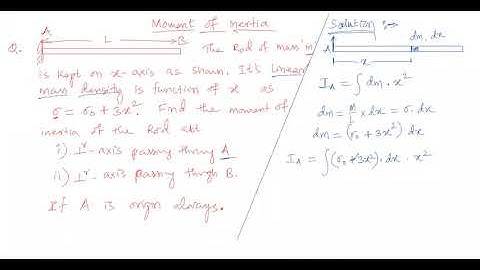 Moment of inertia
Q. A L B The Rod of mass 'm'
is kept on x-axis as shown. It's linear
mass density is function of x as
σ = σ₀ + 3x². Find the moment of
inertia of the Rod abt
i) ⊥ʳ-axis passing through A
ii) ⊥ʳ-axis passing through B.
If A is origin always.
Solution :→
dm, dx
A
x
I_A = ∫ dm · x²
dm = M/L × dx = σ · dx
dm = (σ₀ + 3x²) dx
I_A = ∫(σ₀ + 3x²) · dx · x²